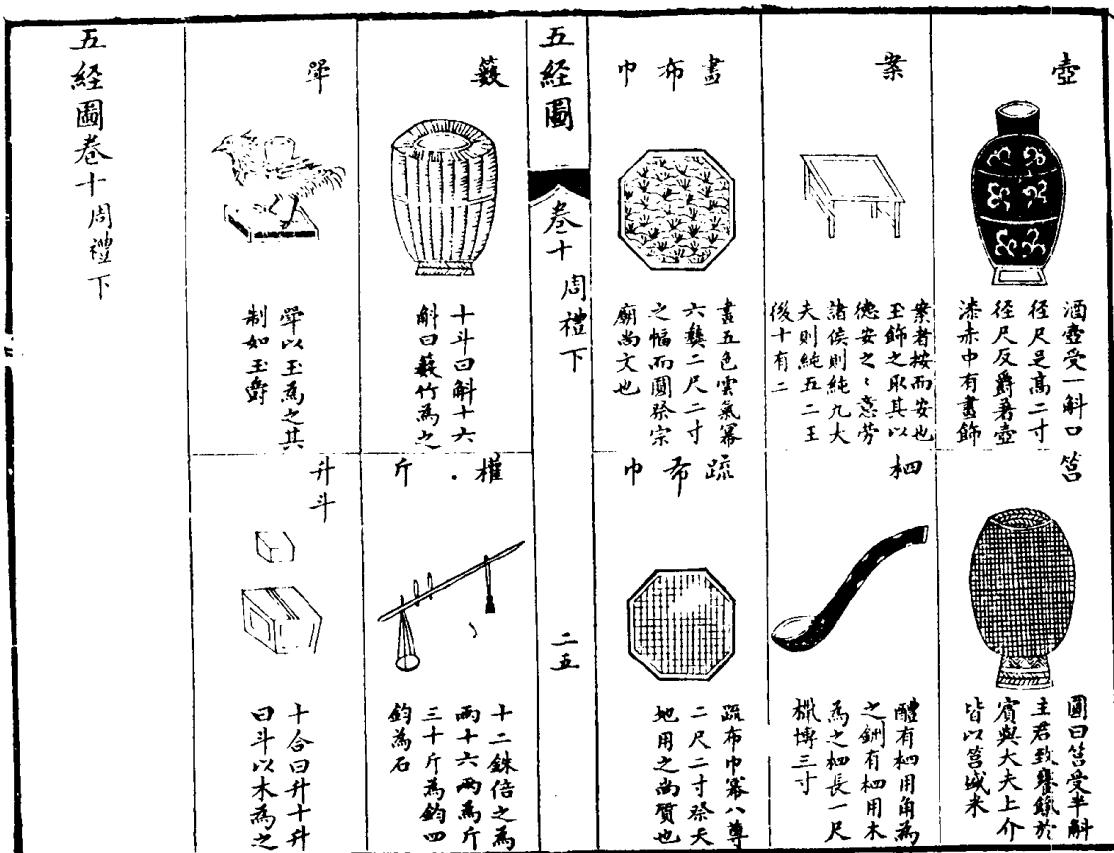 壺
酒壺受一斛口
径尺足高二寸
径尺反爵著壺
漆赤中有畫飾
筥
圓曰筥受半斛
主君致饔餼於
賓與大夫上介
皆以筥盛米
案
案者按而安也
玉飾之取其以
德安之〻意劳
諸侯則純九大
夫則純五二王
後十有二
柶
醴有柶用角為
之鉶有柶用木
為之柶長一尺
櫼博三寸
畫布巾
畫五色雲氣冪
六彝二尺二寸
之幅而圓祭宗
廟尚文也
疏布巾
疏布巾冪八尊
二尺二寸祭天
地用之尚質也
五経圖
卷十
周禮下
二五
籔
十斗曰斛十六
斛曰籔竹為之
權.斤
十二銖倍之為
兩十六兩為斤
三十斤為鈞四
鈞為石
斝
斝以玉為之其
制如玉爵
升斗
十合曰升十升
曰斗以木為之
五経圖卷十周禮下